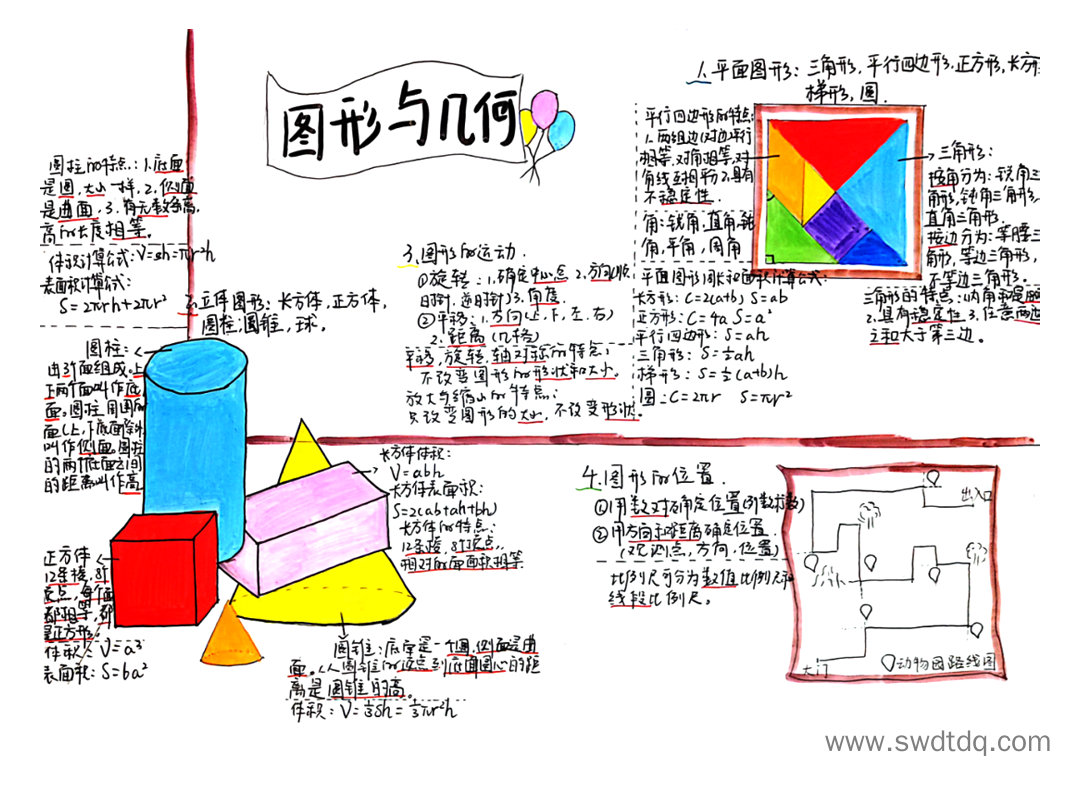 图形与几何
1.平面图形：三角形，平行四边形，正方形，长方
梯形，圆.
平行四边形的特点:
1.两组边(对边)平行
相等，对角相等，对
角线互相平分 2.具有
不稳定性.
角:锐角,直角,钝
角,平角,周角
三角形：
按角分为：锐角三
角形,钝角三角形,
直角三角形.
按边分为：等腰三
角形,等边三角形,
不等边三角形.
三角形的特点：内角和是
2.具有稳定性.3.任意两边
之和大于第三边。
平面图形周长和面积计算公式:
长方形：C=2(a+b) S=ab
正方形：C=4a S=a²
平行四边形：S=ah
三角形：S=½ah
梯形：S=½(a+b)h
圆：C=2πr S=πr²
圆柱的特点：1.底面
是圆，大小一样，2.侧面
是曲面，3.有无数条高,
高的长度相等。
体积计算公式:V=sh=πr²h
表面积计算公式:
S=2πrh+2πr²
2.立体图形：长方体，正方体，
圆柱，圆锥，球.
圆柱：
由3个面组成。上
下两个面叫作底
面。圆柱周围的
面(上,下底面除外)
叫作侧面。圆柱
的两个底面之间
的距离叫作高
3.图形的运动.
①旋转：1.确定中心点 2.方向(顺
时针，逆时针)3.角度.
②平移：1.方向(上,下,左,右)
2.距离(几格)
平移，旋转，轴对称的特点；
不改变图形的形状和大小。
放大与缩小的特点：
只改变图形的大小，不改变形状。
长方体体积：
V=abh
长方体表面积：
S=2(ab+ah+bh)
长方体的特点：
12条棱，8个顶点，
相对的面面积相等
正方体
12条棱，8个
顶点，每个面
都相等，都
是正方形。
体积：V=a³
表面积：S=6a²
圆锥：底面是一个圆，侧面是曲
面。从圆锥的顶点到底面圆心的距
离是圆锥的高。
体积：V=⅓Sh=⅓πr²h
4.图形的位置.
①用数对确定位置(列数,行数)
②用方向和距离确定位置.
(观测点，方向，位置)
比例尺可分为数值比例尺和
线段比例尺。
出入口
大门
动物园路线图
www.swdtdq.com